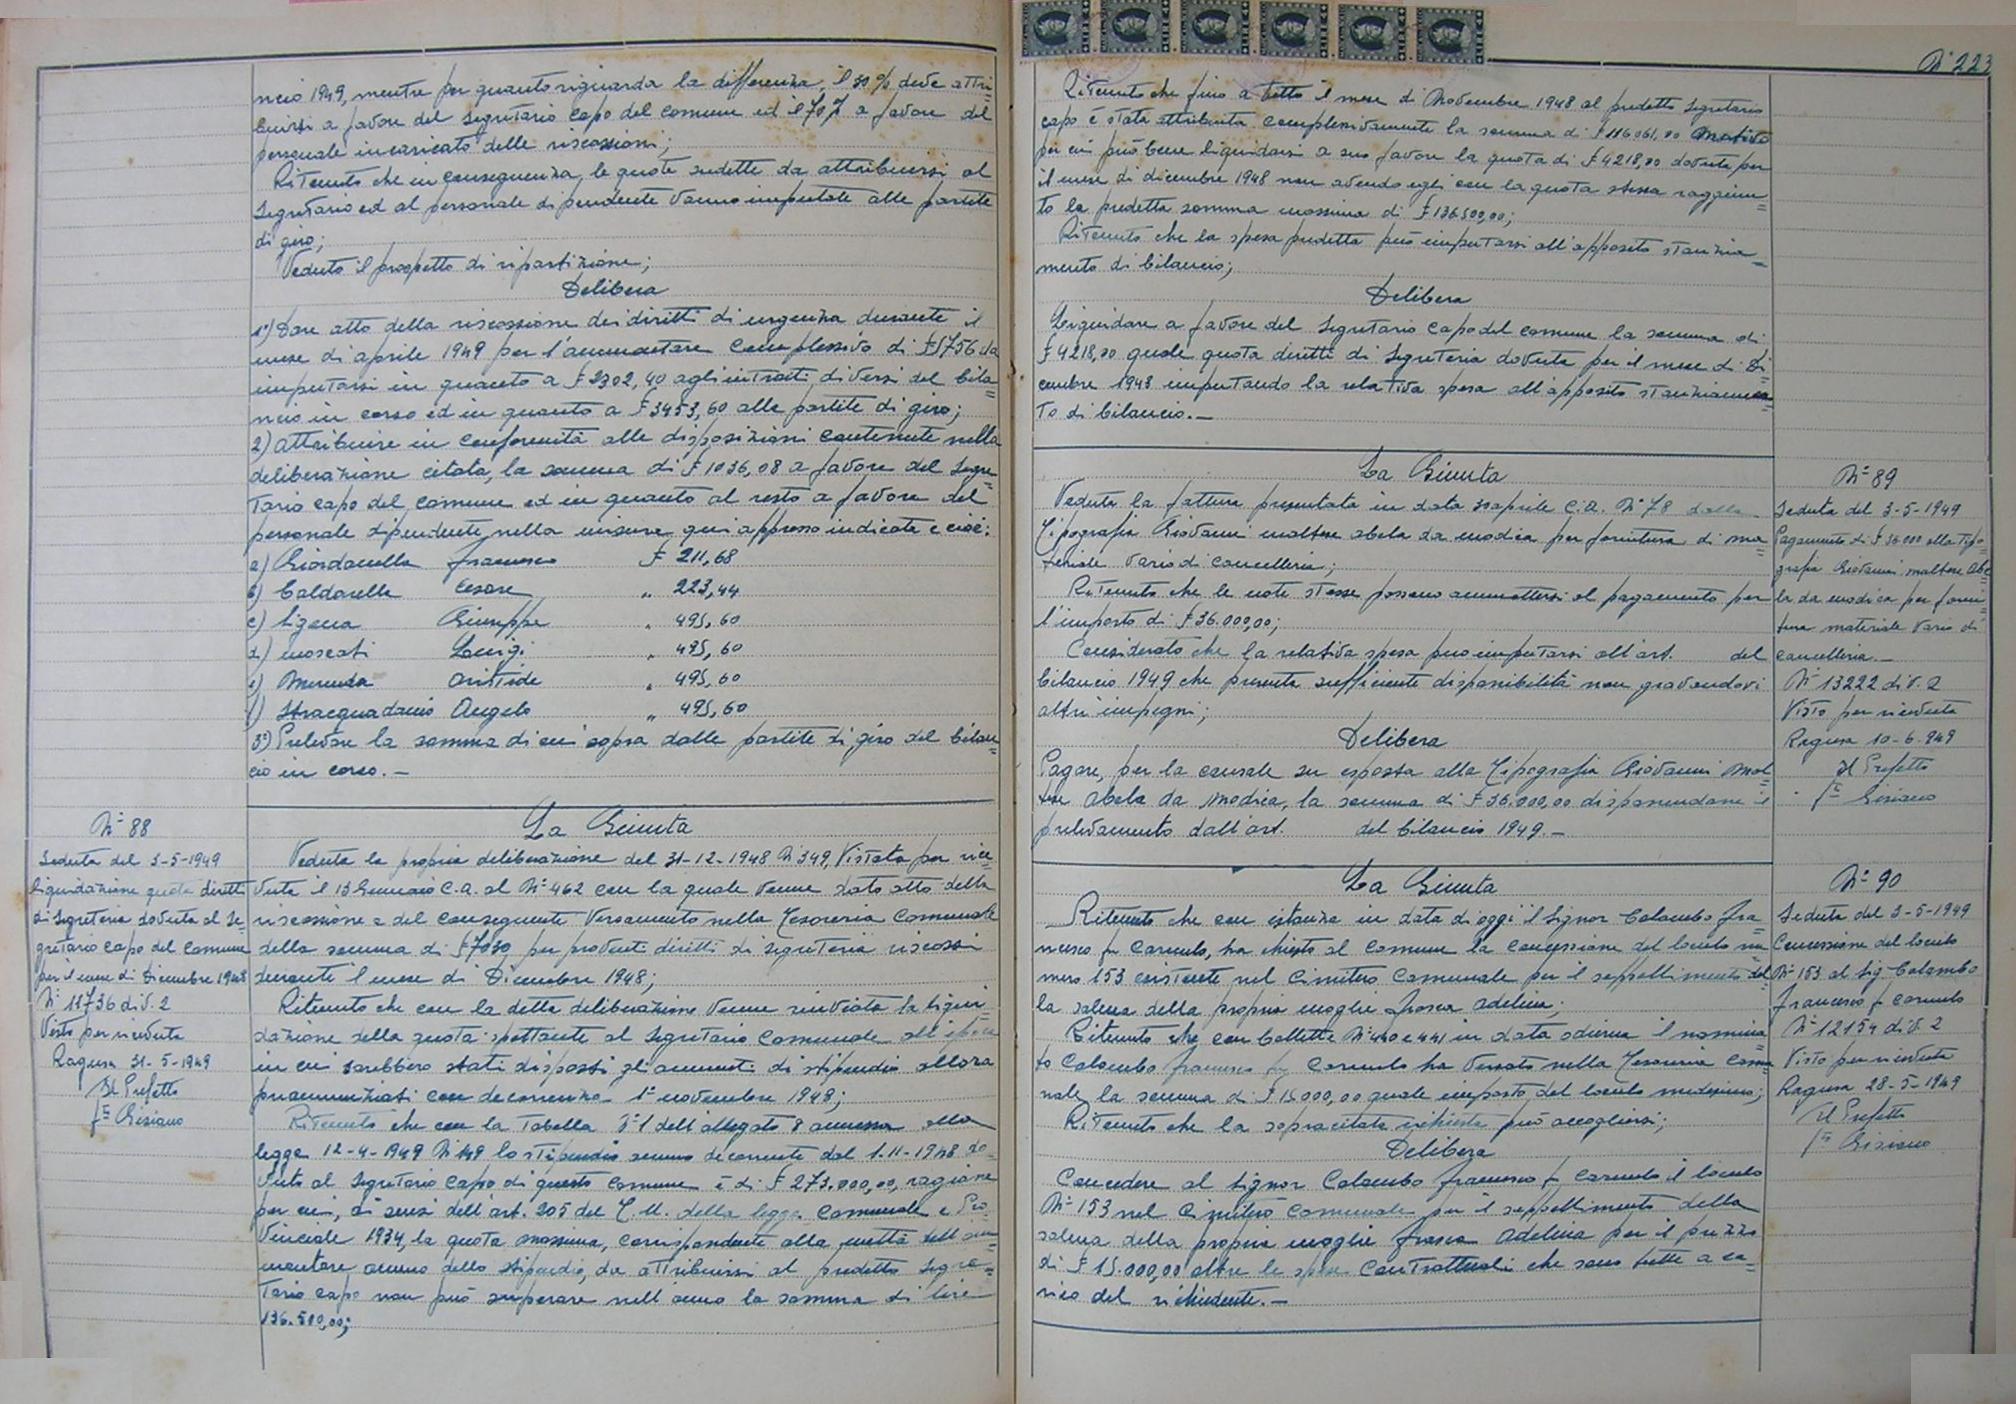 ncio 1949, mentre per quanto riguarda la differenza, il 30% deve attri=
buirsi a favore del Segretario capo del comune ed il 70% a favore del
personale incaricato delle riscossioni;
Ritenuto che in conseguenza, le quote sudette da attribuirsi al
Segretario ed al personale dipendente vanno imputate alle partite
di giro;
Veduto il prospetto di ripartizione;
Delibera
1°) Dare atto della riscossione dei diritti di urgenza durante il
mese di aprile 1949 per l'ammontare complessivo di £ 5756 da
imputarsi in quanto a £ 2302,40 agli introiti diversi del bila=
ncio in corso ed in quanto a £ 3453,60 alle partite di giro;
2) Attribuire in conformità alle disposizioni contenute nella
deliberazione citata, la somma di £ 1036,08 a favore del Segre=
tario capo del comune ed in quanto al resto a favore del
personale dipendente nella misura qui appresso indicata e cioè:
a) Giordanella Francesco £ 211,68
b) Caldarella Cesare " 223,44
c) Ligena Giuseppe " 495,60
d) Moscati Luigi " 495,60
e) Merenda Aristide " 495,60
f) Stracquadanio Angelo " 495,60
3°) Prelevare la somma di cui sopra dalle partite di giro del bilan=
cio in corso.-
N° 88
Seduta del 3-5-1949
Liquidazione quota diritti
di Segreteria dovuta al Se=
gretario capo del Comune
per il mese di Dicembre 1948
N° 11736 div. 2
Visto per ricevuta
Ragusa 31-5-1949
Il Prefetto
fto Girsiano
La Giunta
Veduta la propria deliberazione del 31-12-1948 N 349, Vistata per rice=
vuta il 13 Gennaio C.A. al N° 462 con la quale venne dato atto della
riscossione e del conseguente versamento nella Tesoreria Comunale
della somma di £ 7030 per proventi diritti di segreteria riscossi
durante l mese di Dicembre 1948;
Ritenuto che con la detta deliberazione venne rinviata la liqui=
dazione della quota spettante al Segretario Comunale all'epoca
in cui sarebbero stati disposti gli aumenti di stipendio allora
preannunziati con decorrenza 1° novembre 1948;
Ritenuto che con la Tabella N° 1 dell'allegato 8 annessa alla
legge 12-4-1949 N 149 lo stipendio annuo decorrente dal 1-11-1948 do=
vuto al Segretario Capo di questo comune è di £ 273.000,00, ragione
per cui, ai sensi dell'art. 205 del T.U. della legge Comunale e Pro=
vinciale 1934, la quota massima, corrispondente alla metà dell'am=
montare annuo dello stipendio, da attribuirsi al predetto Segre=
tario capo non può superare nell'anno la somma di lire
136.500,00;
N° 223
Ritenuto che fino a tutto il mese di Novembre 1948 al predetto Segretario
capo è stata attribuita complessivamente la somma di £ 116061,20 motivo
per cui può bene liquidarsi a suo favore la quota di £ 4218,20 dovuta per
il mese di dicembre 1948 non avendo egli con la quota stessa raggiun=
to la predetta somma massima di £ 136.500,00;
Ritenuto che la spesa predetta può imputarsi all'apposito stanzia=
mento di bilancio;
Delibera
Liquidare a favore del Segretario Capo del comune la somma di
£ 4218,20 quale quota diritti di Segreteria dovuta per il mese di Di=
cembre 1948 imputando la relativa spesa all'apposito stanziamen=
to di bilancio.-
La Giunta
Veduta la fattura presentata in data 30 aprile C.A. N° 78 dalla
Tipografia Giovanni Maltese Abela da Modica per fornitura di ma=
teriale vario di cancelleria;
Ritenuto che le note stesse possono ammettersi al pagamento per
l'importo di £ 36.000,00;
Considerato che la relativa spesa può imputarsi all'art. del
bilancio 1949 che presenta sufficiente disponibilità non gravandovi
altri impegni;
Delibera
Pagare, per la causale su esposta alla Tipografia Giovanni Mal=
tese Abela da Modica, la somma di £ 36.000,00 disponendone il
prelevamento dall'art. del bilancio 1949.-
N° 89
Seduta del 3-5-1949
Pagamento di £ 36.000 alla Tipo=
grafia Giovanni Maltese Abe=
la da Modica per forni=
tura materiale vario di
cancelleria.-
N° 13222 div. 2
Visto per ricevuta
Ragusa 10-6-949
Il Prefetto
fto Girsiano
La Giunta
Ritenuto che con istanza in data di oggi il Signor Colombo Fra=
ncesco fu Carmelo, ha chiesto al Comune la concessione del loculo nu=
mero 153 esistente nel Cimitero Comunale per il seppellimento del=
la salma della propria moglie Frasca Adelina;
Ritenuto che con bollette N° 440 e 441 in data odierna il nomina=
to Colombo Francesco fu Carmelo ha versato nella Tesoreria Comu=
nale la somma di £ 15.000,00 quale importo del loculo medesimo;
Ritenuto che la sopracitata richiesta può accogliersi;
Delibera
Concedere al Signor Colombo Francesco fu Carmelo il loculo
N° 153 nel Cimitero Comunale per il seppellimento della
salma della propria moglie Frasca Adelina per il prezzo
di £ 15.000,00 oltre le spese contrattuali che sono tutte a ca=
rico del richiedente.-
N° 90
Seduta del 3-5-1949
Concessione del loculo
N° 153 al Sig. Colombo
Francesco fu Carmelo
N° 12154 div. 2
Visto per ricevuta
Ragusa 28-5-1949
Il Prefetto
fto Girsiano